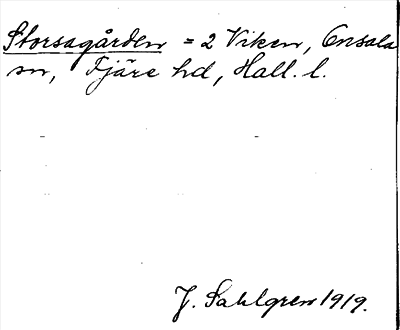 Storsagården = 2 Viken, Onsala
sn, Fjäre hd, Hall. l.
J. Sahlgren 1919.